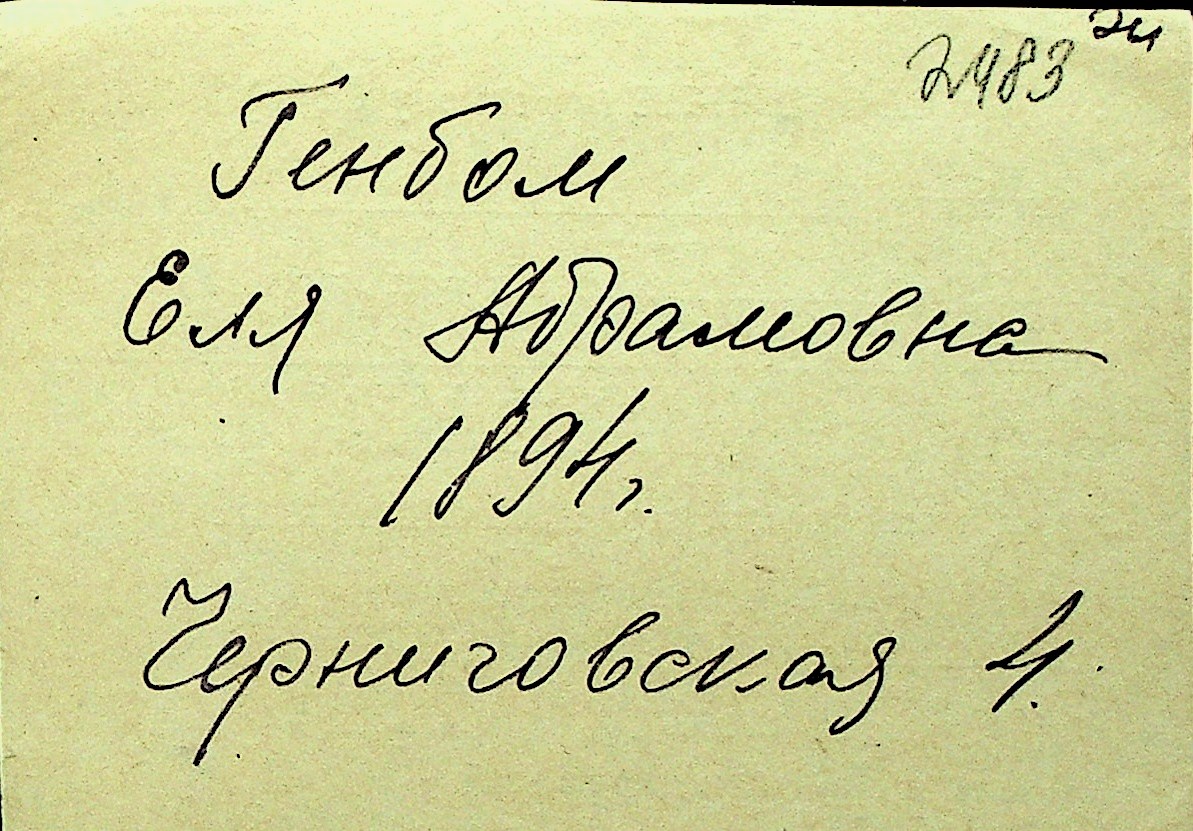 2483
Генбом
Еля Абрамовна
1894г.
Черниговская 4.